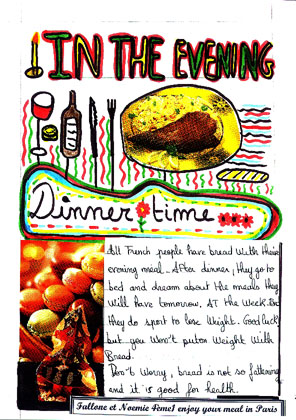 IN THE EVENING
Dinner time...
All French people have bread with their
evening meal. After dinner, they go to
bed and dream about the meals they
will have tomorrow. AT the week-
they do sport to lose weight. Good luck
but you won't put on weight with
Bread.
Don't worry, bread is not so fattening
and it is good for health.
Fallone et Noemie 4eme1 enjoy your meal in Paris